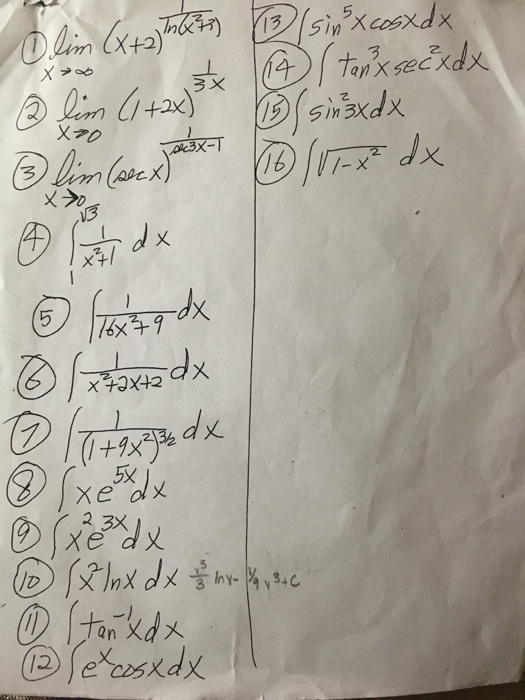 ① lim x→∞ (x+2)^(1/ln(x²+3))
② lim x→0 (1+2x)^(1/3x)
③ lim x→0 (sec x)^(1/(sec3x-1))
④ ∫₁^√3 1/(x²+1) dx
⑤ ∫ 1/(16x²+9) dx
⑥ ∫ 1/(x²+2x+2) dx
⑦ ∫ 1/(1+9x²)^(3/2) dx
⑧ ∫xe^(5x)dx
⑨ ∫x²e^(3x)dx
⑩ ∫x²lnx dx x³/3 lnx- 1/9 x³+c
⑪ ∫tan⁻¹xdx
⑫ ∫e^x cosxdx
⑬ ∫sin⁵xcosxdx
⑭ ∫tan³xsec²xdx
⑮ ∫sin²3xdx
⑯ ∫√(1-x²) dx